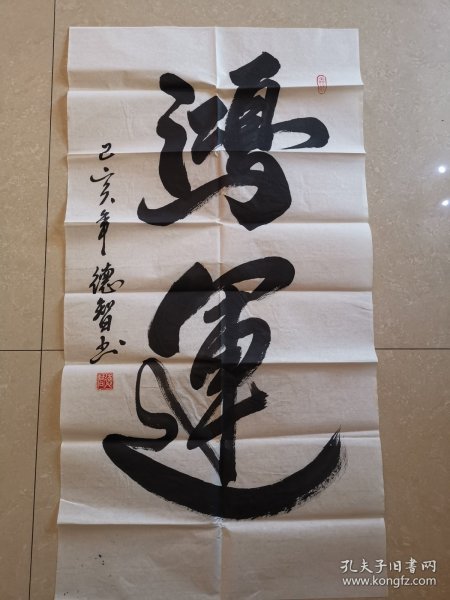 鸿運
己亥年 德智书
孔夫子旧书网
www.kongfz.com